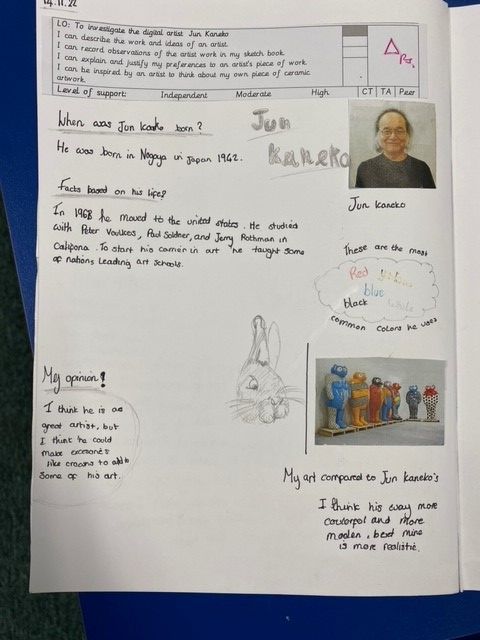 14.11.22
LO: To investigate the digital artist Jun Kaneko
I can describe the work and ideas of an artist.
I can record observations of the artist work in my sketch book.
I can explain and justify my preferences to an artist's piece of work.
I can be inspired by an artist to think about my own piece of ceramic
artwork.
Level of support: Independent Moderate High CT TA Peer
When was Jun Kaneko born?
Jun
Kaneko
He was born in Nagoya in Japan 1942.
Jun Kaneko
Facts based on his life?
In 1968 he moved to the united states. He studied
with Peter Voulkes, Paul Soldner, and Jerry Rothman in
Califona. To start his carrier in art he taught some
of nations leading art schools.
These are the most
Red yellow
blue
black white
common colors he uses
My opinion!
I think he is a
great artist, but
I think he could
make
like to add to
some of his art.
My art compared to Jun Kaneko's
I think his way more
coulorful and more
moden, but mine
is more realistic.